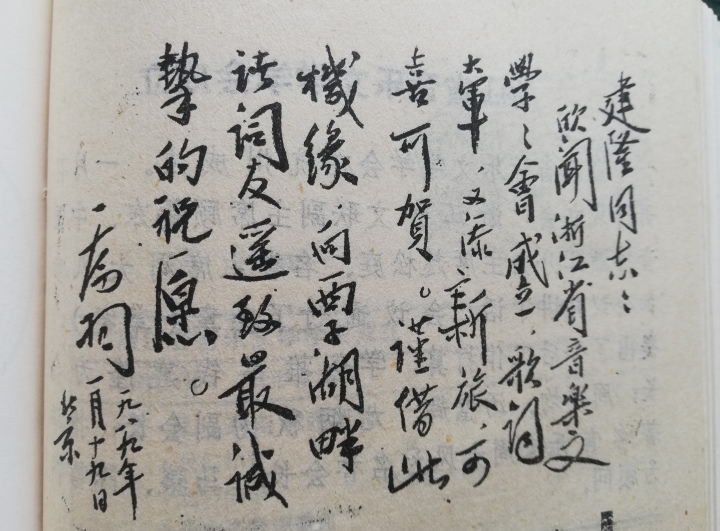 建隆同志：
欣聞浙江省音樂文
學々會成立，歌词
大軍，又添新旅，可
喜可賀。谨借此
機缘，向西子湖畔
诸词友遥致最誠
摯的祝愿。
乔羽
一九八九年
一月十九日
北京